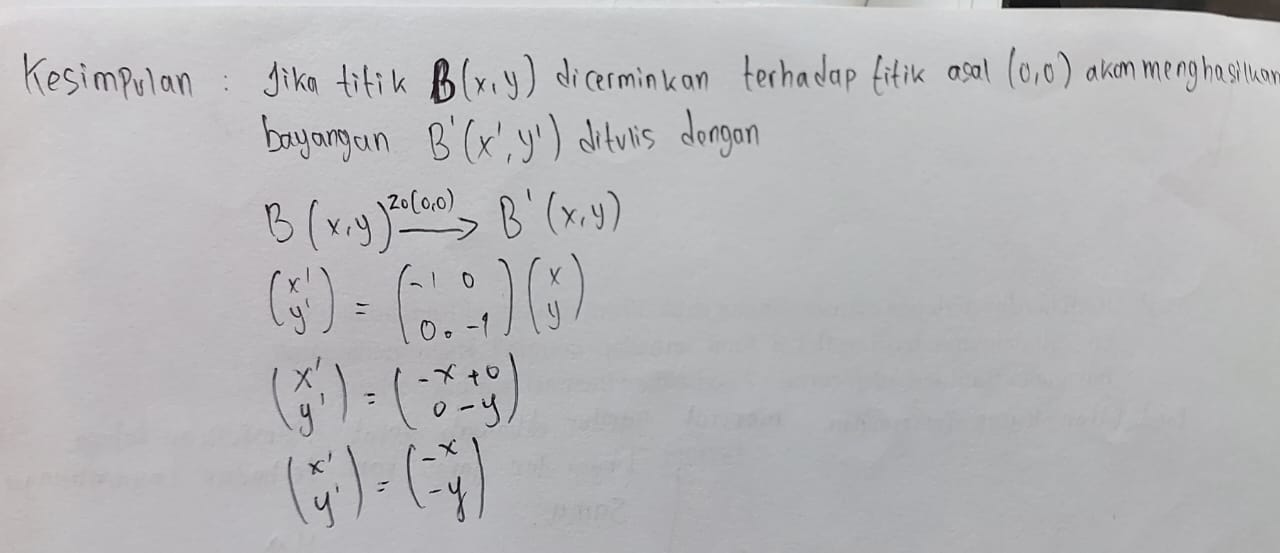 Kesimpulan : Jika titik B(x,y) dicerminkan terhadap titik asal (0,0) akan menghasilkan
bayangan B'(x',y') ditulis dengan
B(x,y) 20(0,0) → B'(x,y)
(x' y') = (-1 0 0. -1)(x y)
(x' y') = (-x+0 0-y)
(x' y') = (-x -y)